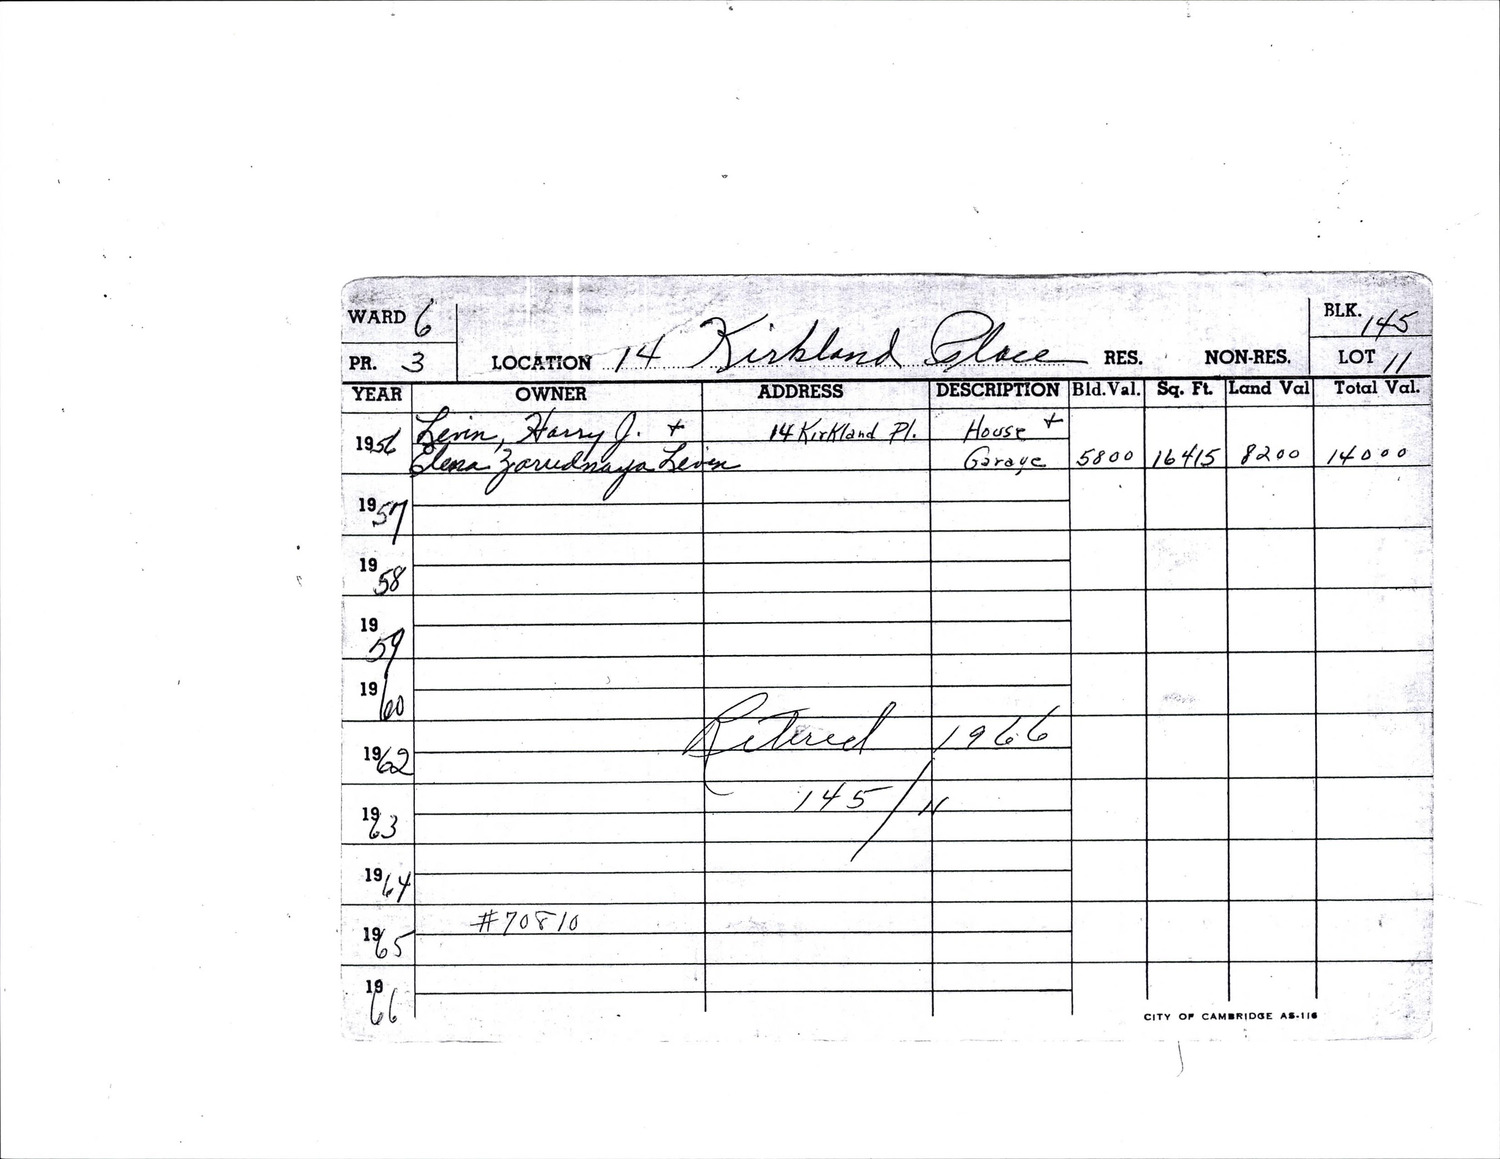 WARD 6
BLK. 145
PR. 3 LOCATION 14 Kirkland Place RES. NON-RES. LOT 11
YEAR OWNER ADDRESS DESCRIPTION Bld.Val. Sq. Ft. Land Val Total Val.
1956 Levin, Harry J. + 14 Kirkland Pl. House +
Elena Zarudnaya Levin Garage 5800 16415 8200 14000
1957
1958
1959
1960
Retired 1966
1962
145/11
1963
1964
#70810
1965
1966
CITY OF CAMBRIDGE AS-116